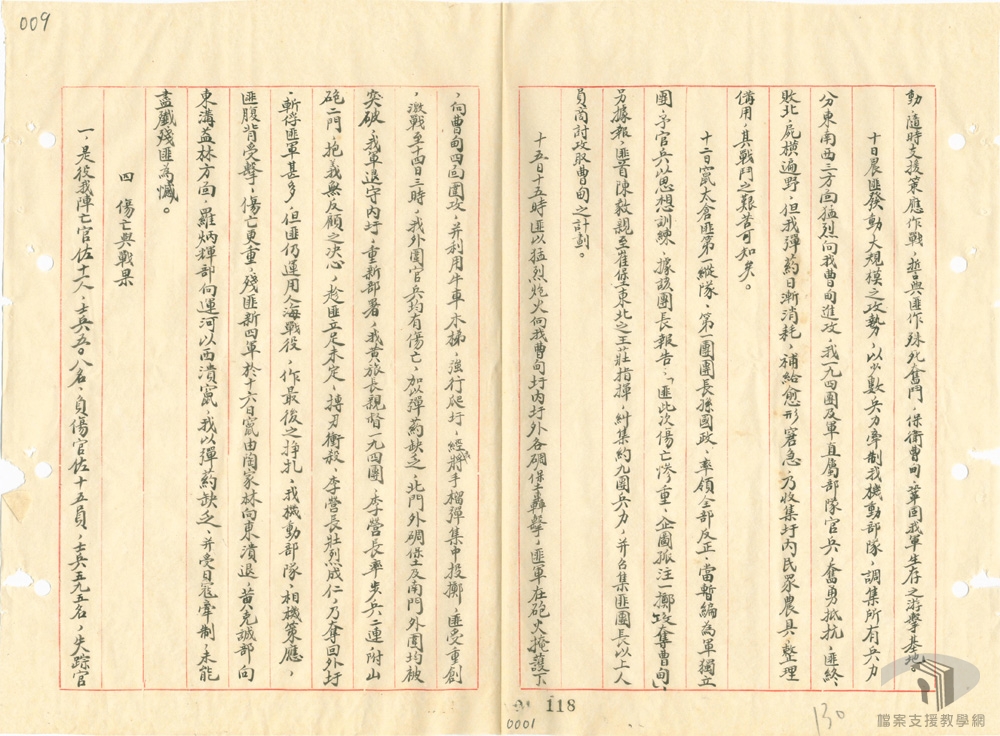 009
動，隨時支援策應作戰，誓與匪作殊死奮鬥，保衛曹甸，鞏固我軍生存之游擊基地。
十日晨匪發動大規模之攻勢，以少數兵力牽制我機動部隊，調集所有兵力
分東南西三方面猛烈向我曹甸進攻，我一九四團及軍直屬部隊官兵，奮勇抵抗，匪終
敗北，屍橫遍野，但我彈葯日漸消耗，補給愈形窘急，乃收集圩內民眾農具，整理
備用，其戰鬥之艱苦可知矣。
十二日竄太倉匪第一縱隊，第一團團長孫國政，率領全部反正，當暫編為軍獨立
團，予官兵以思想訓練，據該團長報告：「匪此次傷亡慘重，企圖孤注一擲攻奪曹甸」，
另據報，匪首陳毅親至崔堡東北之王莊指揮，糾集約九團兵力，并召集匪團長以上人
員商討攻取曹甸之計劃。
十五日十五時匪以猛烈炮火向我曹甸圩內圩外各碉堡轟擊，匪軍在砲火掩護下
，向曹甸四面圍攻，并利用牛車木梯，強行爬圩，經將手榴彈集中投擲，匪受重創
，激戰至十四日三時，我外圍官兵均有傷亡，加以彈葯缺乏，北門外碉堡及南門外圍均被
突破，我軍退守內圩，重新部署，我黃旅長親督一九四團，李營長率步兵二連附山
砲二門，抱義無反顧之決心，趁匪立足未定，搏刃衝殺，李營長壯烈成仁，乃奪回外圩
，斬俘匪軍甚多，但匪仍運用人海戰役，作最後之掙扎，我機動部隊，相機策應，
匪腹背受擊，傷亡更重，殘匪新四軍於十六日竄由陶家林向東潰退，黃克誠部向
東溝益林方向，羅炳輝部向運河以西潰竄，我以彈葯缺乏，并受日寇牽制，未能
盡殲殘匪為憾。
四　傷亡與戰果
一、是役我陣亡官佐十六人，士兵五〇八名，負傷官佐十五員，士兵五九五名，失踪官
118
0001
130
檔案支援教學網